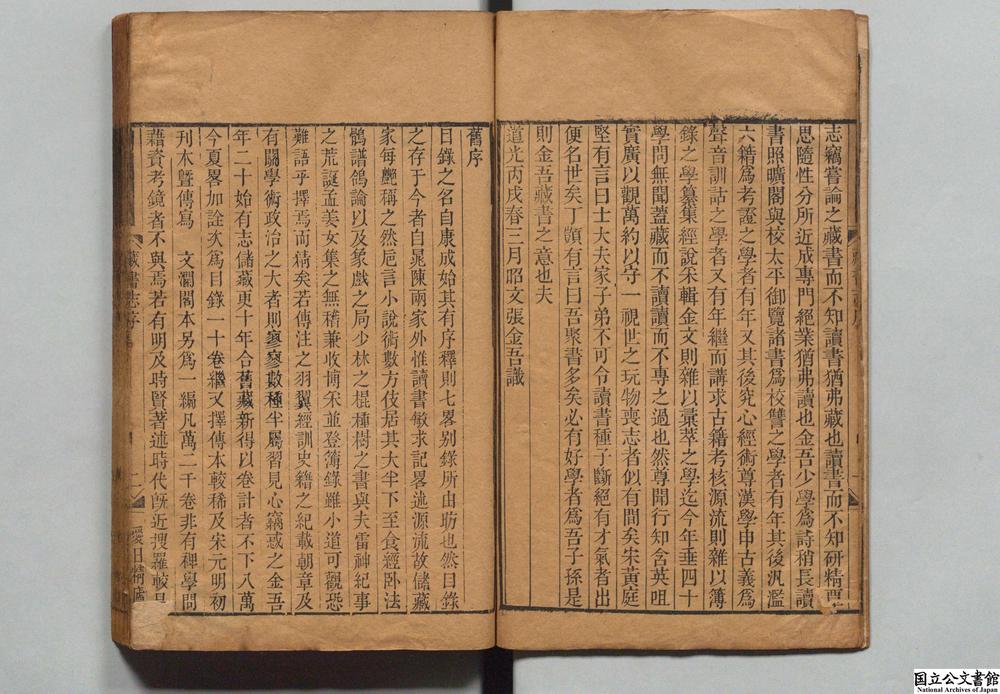 志竊嘗論之藏書而不知讀書猶弗藏也讀書而不知研精覃
思隨性分所近成專門絕業猶弗讀也金吾少學為詩稍長讀
書照曠閣與校太平御覽諸書為校讐之學者有年其後汎濫
六籍為考證之學者有年又其後究心經術尊漢學申古義為
聲音訓詁之學者又有年繼而講求古籍考核源流則雜以簿
錄之學纂集經說采輯金文則雜以彙萃之學迄今年垂四十
學問無聞蓋藏而不讀讀而不專之過也然尊聞行知含英咀
實廣以觀萬約以守一視世之玩物喪志者似有間矣宋黃庭
堅有言曰士大夫家子弟不可令讀書種子斷絕有才氣者出
便名世矣丁顗有言曰吾聚書多矣必有好學者為吾子孫是
則金吾藏書之意也夫
道光丙戌春三月昭文張金吾識
舊序
目錄之名自康成始其有序釋則七畧别錄所由昉也然目錄
之存于今者自晁陳兩家外惟讀書敏求記畧述源流故儲藏
家每豔稱之然卮言小說術數方伎居其大半下至食經卧法
鵪譜鴿論以及象戲之局少林之棍種樹之書與夫雷神紀事
之荒誕孟美女集之無稽兼收博采並登簿錄雖小道可觀恐
難語乎擇焉而精矣若傳注之羽翼經訓史籍之紀載朝章及
有關學術政治之大者則寥寥數種半屬習見心竊惑之金吾
年二十始有志儲藏更十年合舊藏新得以卷計者不下八萬
今夏畧加詮次為目錄一十卷繼又擇傳本較稀及宋元明初
刊本曁傳寫　文瀾閣本另為一編凡萬二千卷非有稗學問
藉資考鏡者不與焉若有明及時賢著述時代旣近搜羅較易
藏書志序
二
愛日精廬
国立公文書館
National Archives of Japan